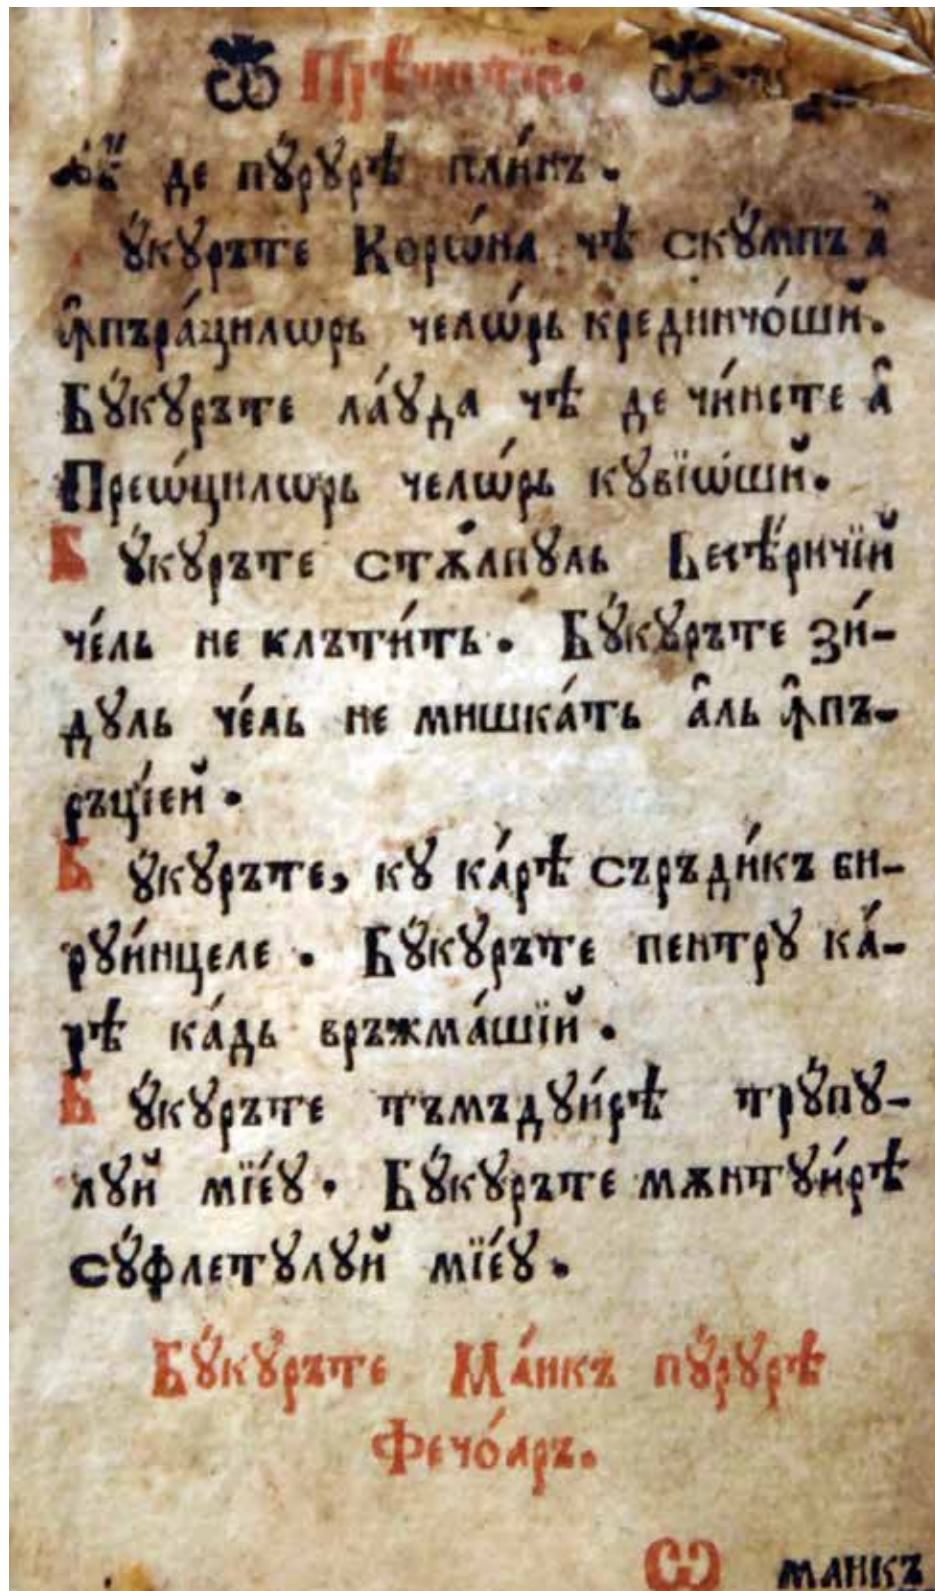 де пꙋрꙋрѣ пли́нъ.
ꙋ҆́кꙋрътє Корѡ́на чѣ скꙋ́мпъ а҆̑
ꙟ҆пъра́цилѡрь чєлѡ́рь крєдинчо́ший.
Бꙋ́кꙋрътє ла́ꙋда чѣ дє чи́нстє а҆̑
Прєѡ́цилѡрь чєлѡ́рь кꙋвїѡ́ший.
Бꙋ́кꙋрътє стѫ́лпꙋль Бєсѣ́ричїй
чє́ль нє клъти́ть. Бꙋ́кꙋрътє зи́-
дꙋль чє́ль нє мишка́ть а҆̑ль ꙟ҆пъ-
ръці́єй.
Бꙋ́кꙋрътє, кꙋ ка́рѣ съръди́къ би-
рꙋи́нцєлє. Бꙋ́кꙋрътє пєнтрꙋ ка́-
рѣ ка́дь връжма́шїй.
Бꙋ́кꙋрътє тъмъдꙋи́рѣ трꙋ́пꙋ-
лꙋй мїє́ꙋ. Бꙋ́кꙋрътє мѫнтꙋи́рѣ
сꙋ́флєтꙋлꙋй мїє́ꙋ.
Бꙋ́кꙋрътє Ма́йкъ пꙋ́рꙋрѣ
Фєчо́аръ.
Ѡ майкъ